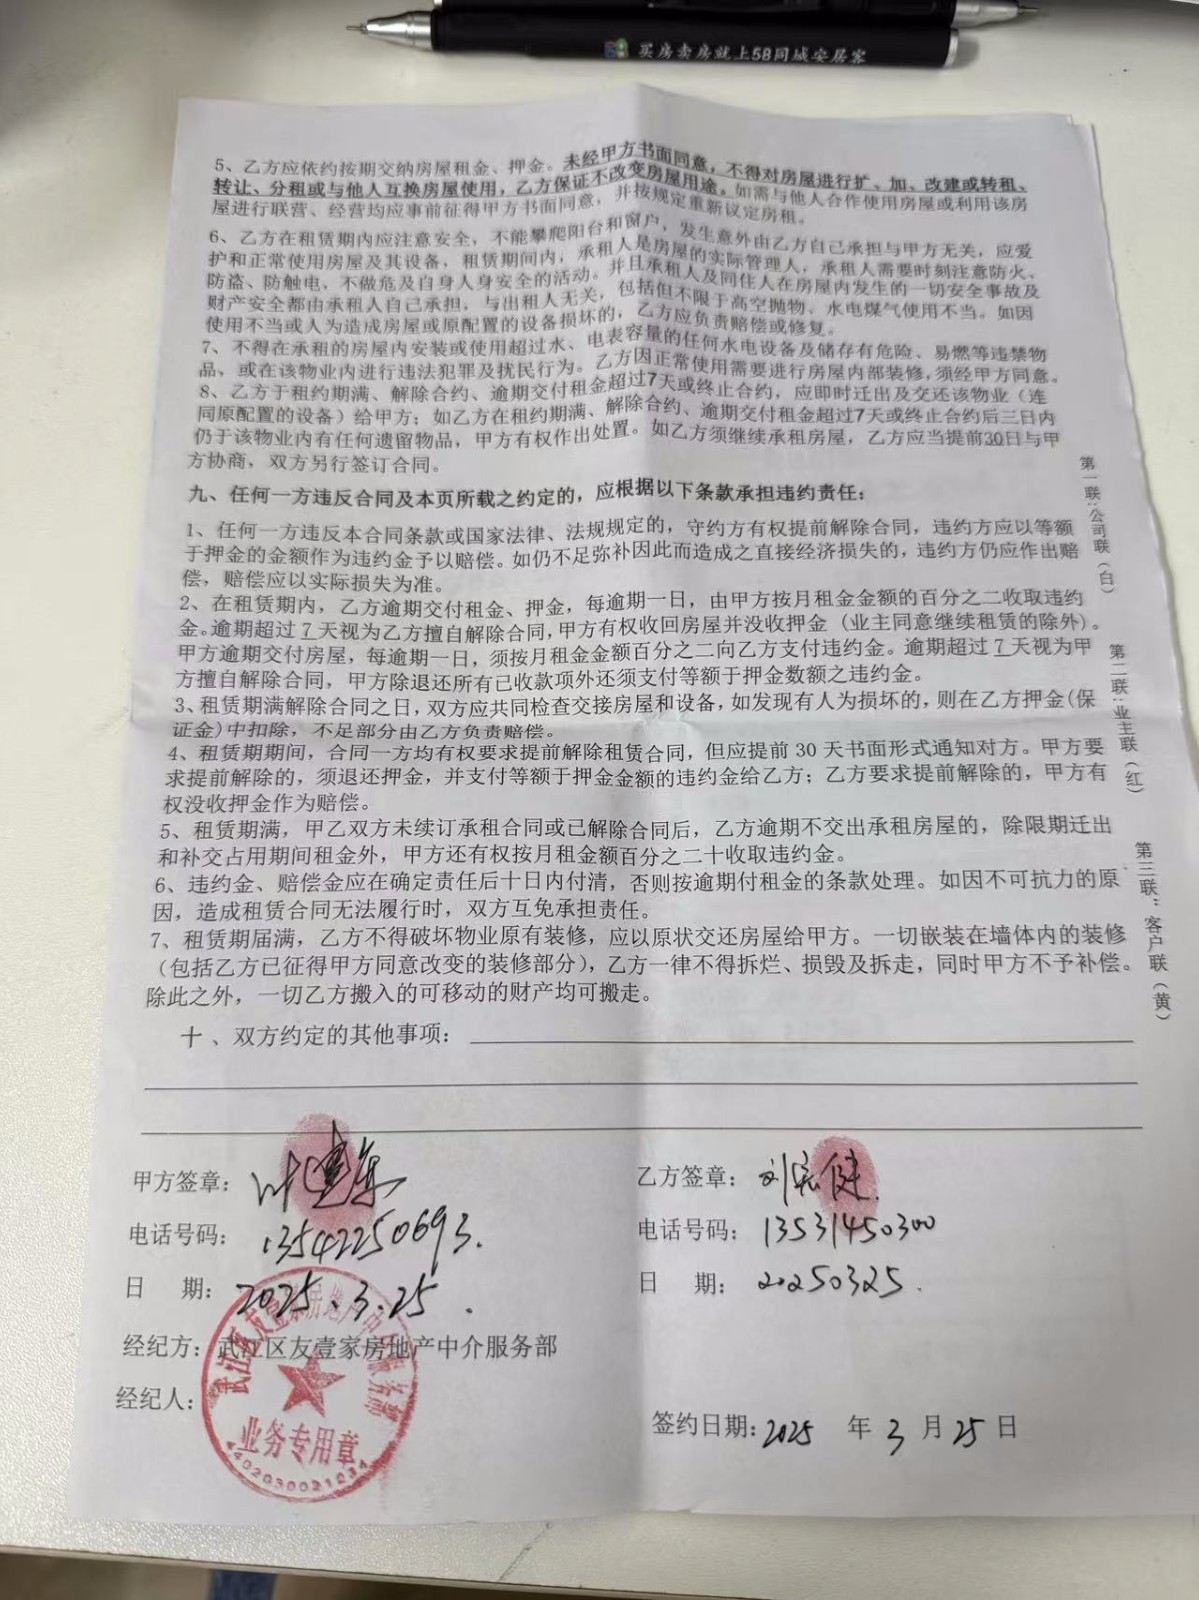 买房卖房就上58同城安居客
5、乙方应依约按期交纳房屋租金、押金。未经甲方书面同意，不得对房屋进行扩、加、改建或转租、
转让、分租或与他人互换房屋使用，乙方保证不改变房屋用途。如需与他人合作使用房屋或利用该房
屋进行联营、经营均应事前征得甲方书面同意，并按规定重新议定房租。
6、乙方在租赁期内应注意安全，不能攀爬阳台和窗户，发生意外由乙方自己承担与甲方无关，应爱
护和正常使用房屋及其设备，租赁期间内，承租人是房屋的实际管理人，承租人需要时刻注意防火、
防盗、防触电，不做危及自身人身安全的活动。并且承租人及同住人在房屋内发生的一切安全事故及
财产安全都由承租人自己承担，与出租人无关，包括但不限于高空抛物、水电煤气使用不当。如因
使用不当或人为造成房屋或原配置的设备损坏的，乙方应负责赔偿或修复。
7、不得在承租的房屋内安装或使用超过水、电表容量的任何水电设备及储存有危险、易燃等违禁物
品、或在该物业内进行违法犯罪及扰民行为。乙方因正常使用需要进行房屋内部装修，须经甲方同意。
8、乙方于租约期满、解除合约、逾期交付租金超过7天或终止合约，应即时迁出及交还该物业（连
同原配置的设备）给甲方；如乙方在租约期满、解除合约、逾期交付租金超过7天或终止合约后三日内
仍于该物业内有任何遗留物品，甲方有权作出处置。如乙方须继续承租房屋，乙方应当提前30日与甲
方协商，双方另行签订合同。
九、任何一方违反合同及本页所载之约定的，应根据以下条款承担违约责任：
1、任何一方违反本合同条款或国家法律、法规规定的，守约方有权提前解除合同，违约方应以等额
于押金的金额作为违约金予以赔偿。如仍不足弥补因此而造成之直接经济损失的，违约方仍应作出赔
偿，赔偿应以实际损失为准。
2、在租赁期内，乙方逾期交付租金、押金，每逾期一日，由甲方按月租金金额的百分之二收取违约
金。逾期超过7天视为乙方擅自解除合同，甲方有权收回房屋并没收押金（业主同意继续租赁的除外）。
甲方逾期交付房屋，每逾期一日，须按月租金金额百分之二向乙方支付违约金。逾期超过7天视为甲
方擅自解除合同，甲方除退还所有己收款项外还须支付等额于押金数额之违约金。
3、租赁期满解除合同之日，双方应共同检查交接房屋和设备，如发现有人为损坏的，则在乙方押金(保
证金)中扣除，不足部分由乙方负责赔偿。
4、租赁期期间，合同一方均有权要求提前解除租赁合同，但应提前30天书面形式通知对方。甲方要
求提前解除的，须退还押金，并支付等额于押金金额的违约金给乙方；乙方要求提前解除的，甲方有
权没收押金作为赔偿。
5、租赁期满，甲乙双方未续订承租合同或已解除合同后，乙方逾期不交出承租房屋的，除限期迁出
和补交占用期间租金外，甲方还有权按月租金额百分之二十收取违约金。
6、违约金、赔偿金应在确定责任后十日内付清，否则按逾期付租金的条款处理。如因不可抗力的原
因，造成租赁合同无法履行时，双方互免承担责任。
7、租赁期届满，乙方不得破坏物业原有装修，应以原状交还房屋给甲方。一切嵌装在墙体内的装修
（包括乙方已征得甲方同意改变的装修部分），乙方一律不得拆烂、损毁及拆走，同时甲方不予补偿。
除此之外，一切乙方搬入的可移动的财产均可搬走。
十、双方约定的其他事项：
第一联：公司联（白）
第二联：业主联（红）
第三联：客户联（黄）
甲方签章：叶建东
电话号码：13542250693.
日 期：2025.3.25.
经纪方：武江区友壹家房地产中介服务部
经纪人：
武江区友壹家房地产中介服务部
业务专用章
乙方签章：刘宏健
电话号码：13531450300
日 期：20250325.
签约日期：2025 年 3 月 25 日